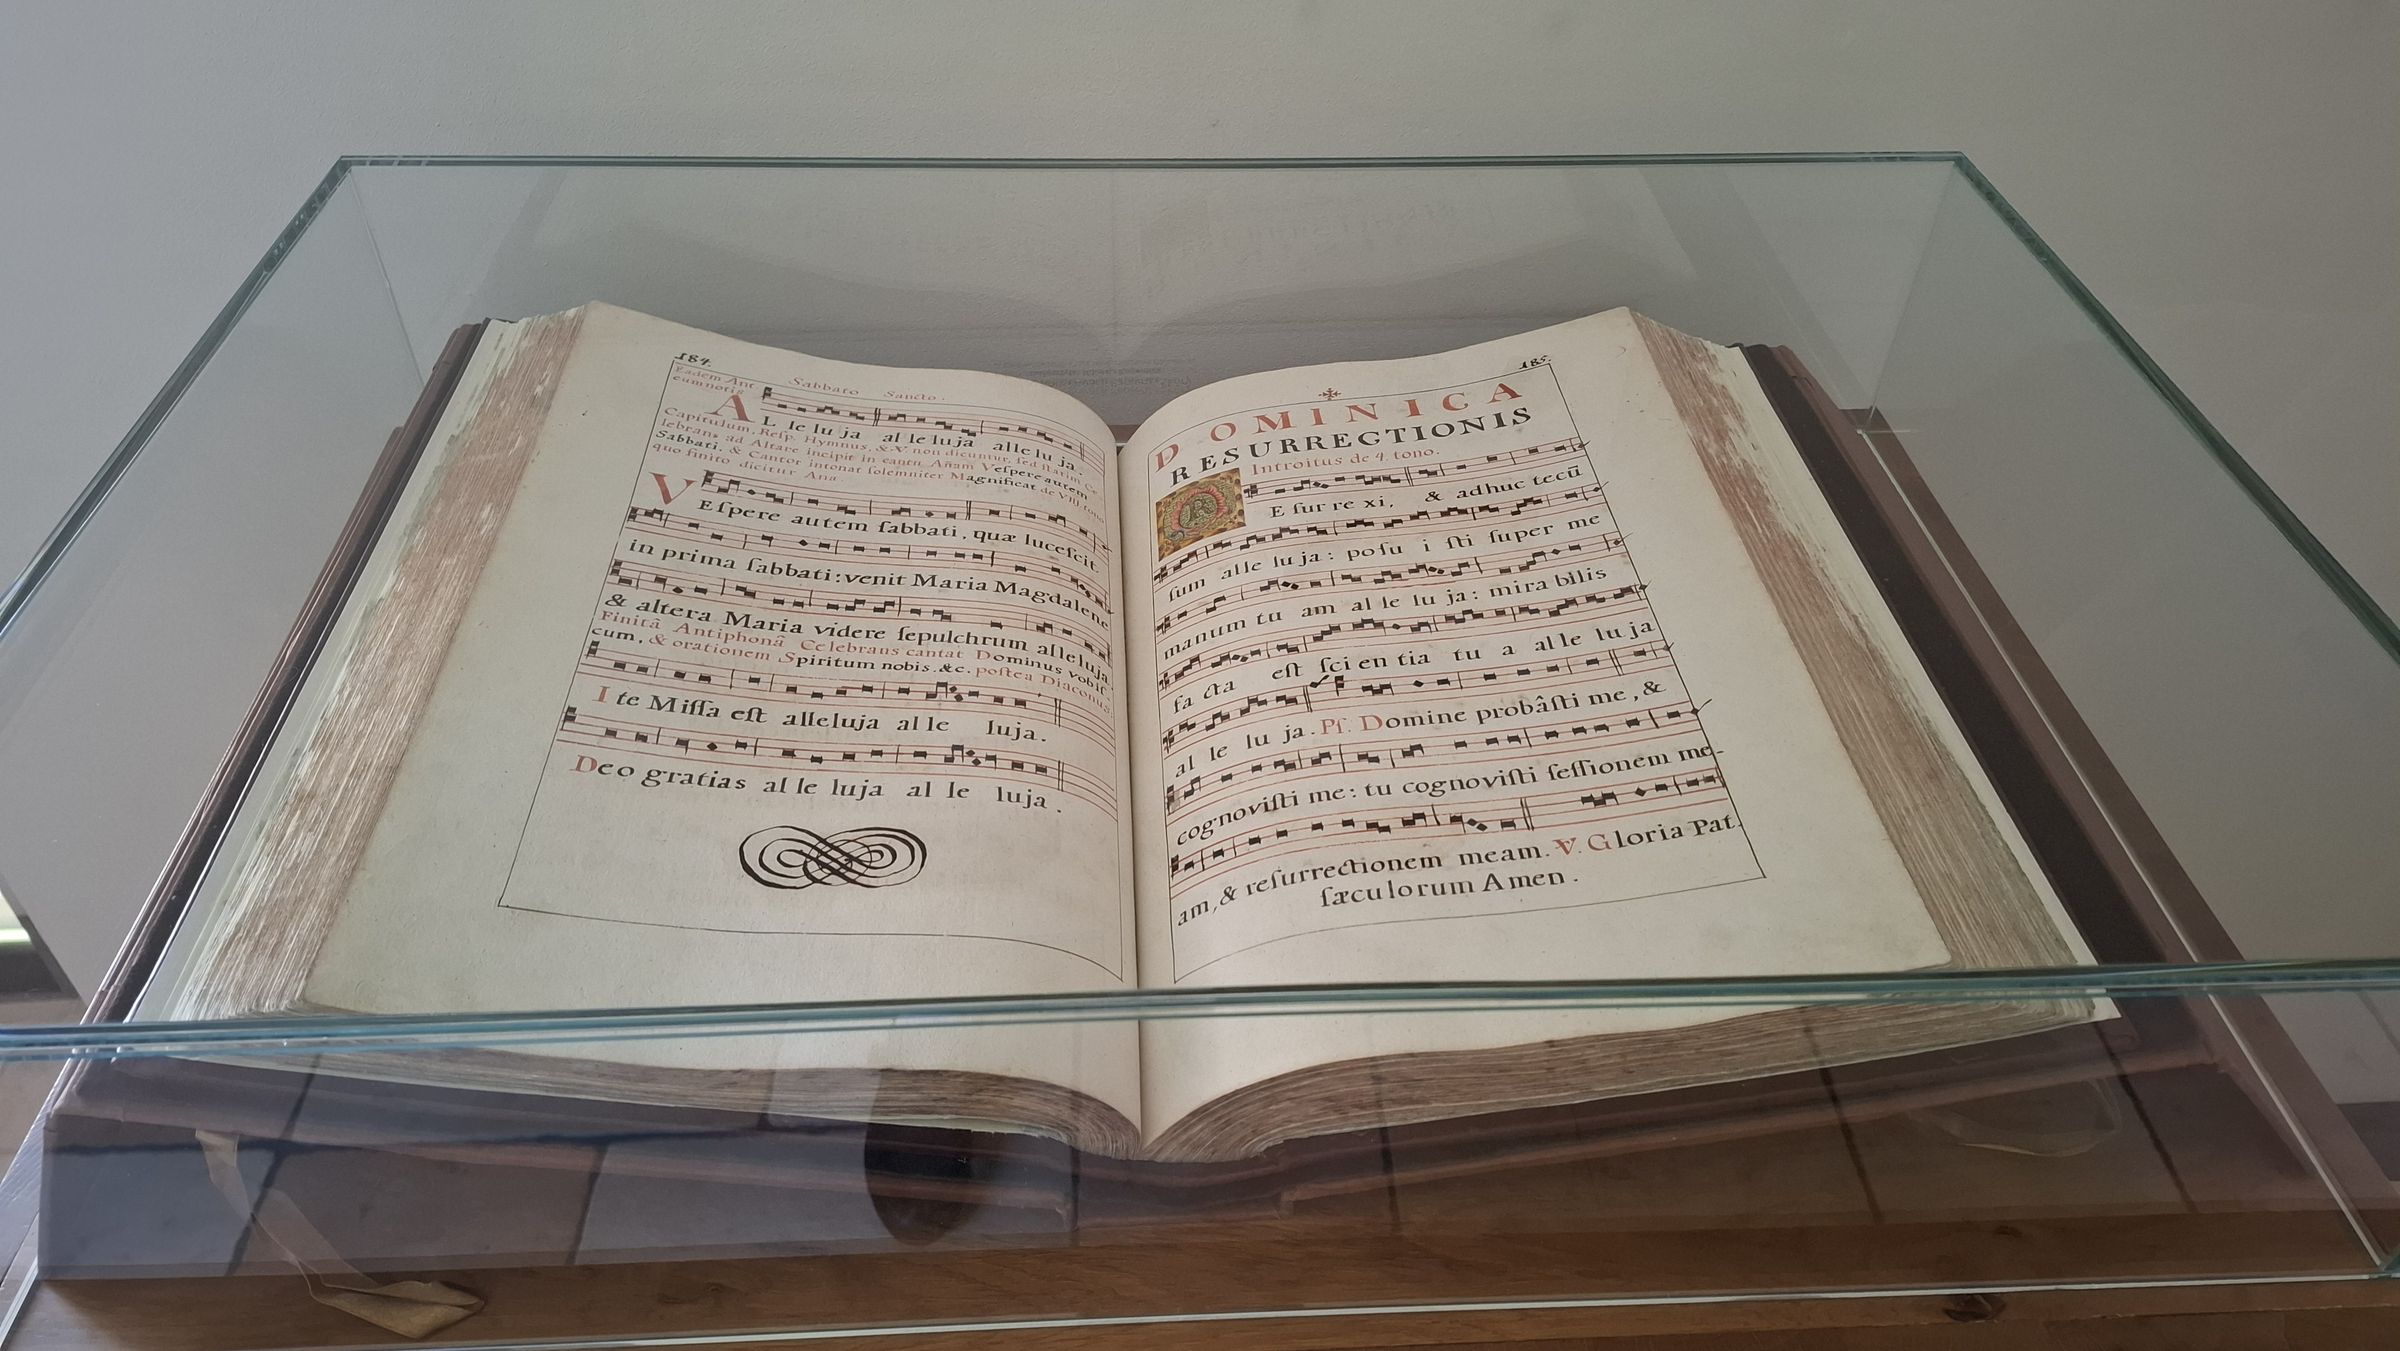 184.
Sabbato Sancto.
Eadem Ant
cum notis
AL le lu ja al le luja alle lu ja.
Capitulum, Resp. Hymnus, & V. non dicuntur, sed statim Ce
lebrans ad Altare incipit in cantu Anam Vespere autem
Sabbati, & Cantor intonat solemniter Magnificat de VIII. tono
quo finito dicitur Ana.
VEſpere autem ſabbati, quæ luceſcit
in prima ſabbati: venit Maria Magdalene
& altera Maria videre ſepulchrum alleluja.
Finitâ Antiphonâ Celebrans cantat Dominus vobiſ
cum, & orationem Spiritum nobis. &c. poſtea Diaconus:
I te Miſſa eſt alleluja al le luja.
Deo gratias al le luja al le luja.
185.
DOMINICA
RESURRECTIONIS
Introitus de 4. tono.
RE ſur re xi, & adhuc tecū
ſum alle lu ja: poſu i ſti ſuper me
manum tu am al le lu ja: mira bilis
fa cta eſt ſci en tia tu a al le lu ja
al le lu ja. Pſ. Domine probâſti me, &
cognoviſti me: tu cognoviſti ſeſſionem me-
am, & reſurrectionem meam. V. Gloria Pat.
ſæculorum Amen.